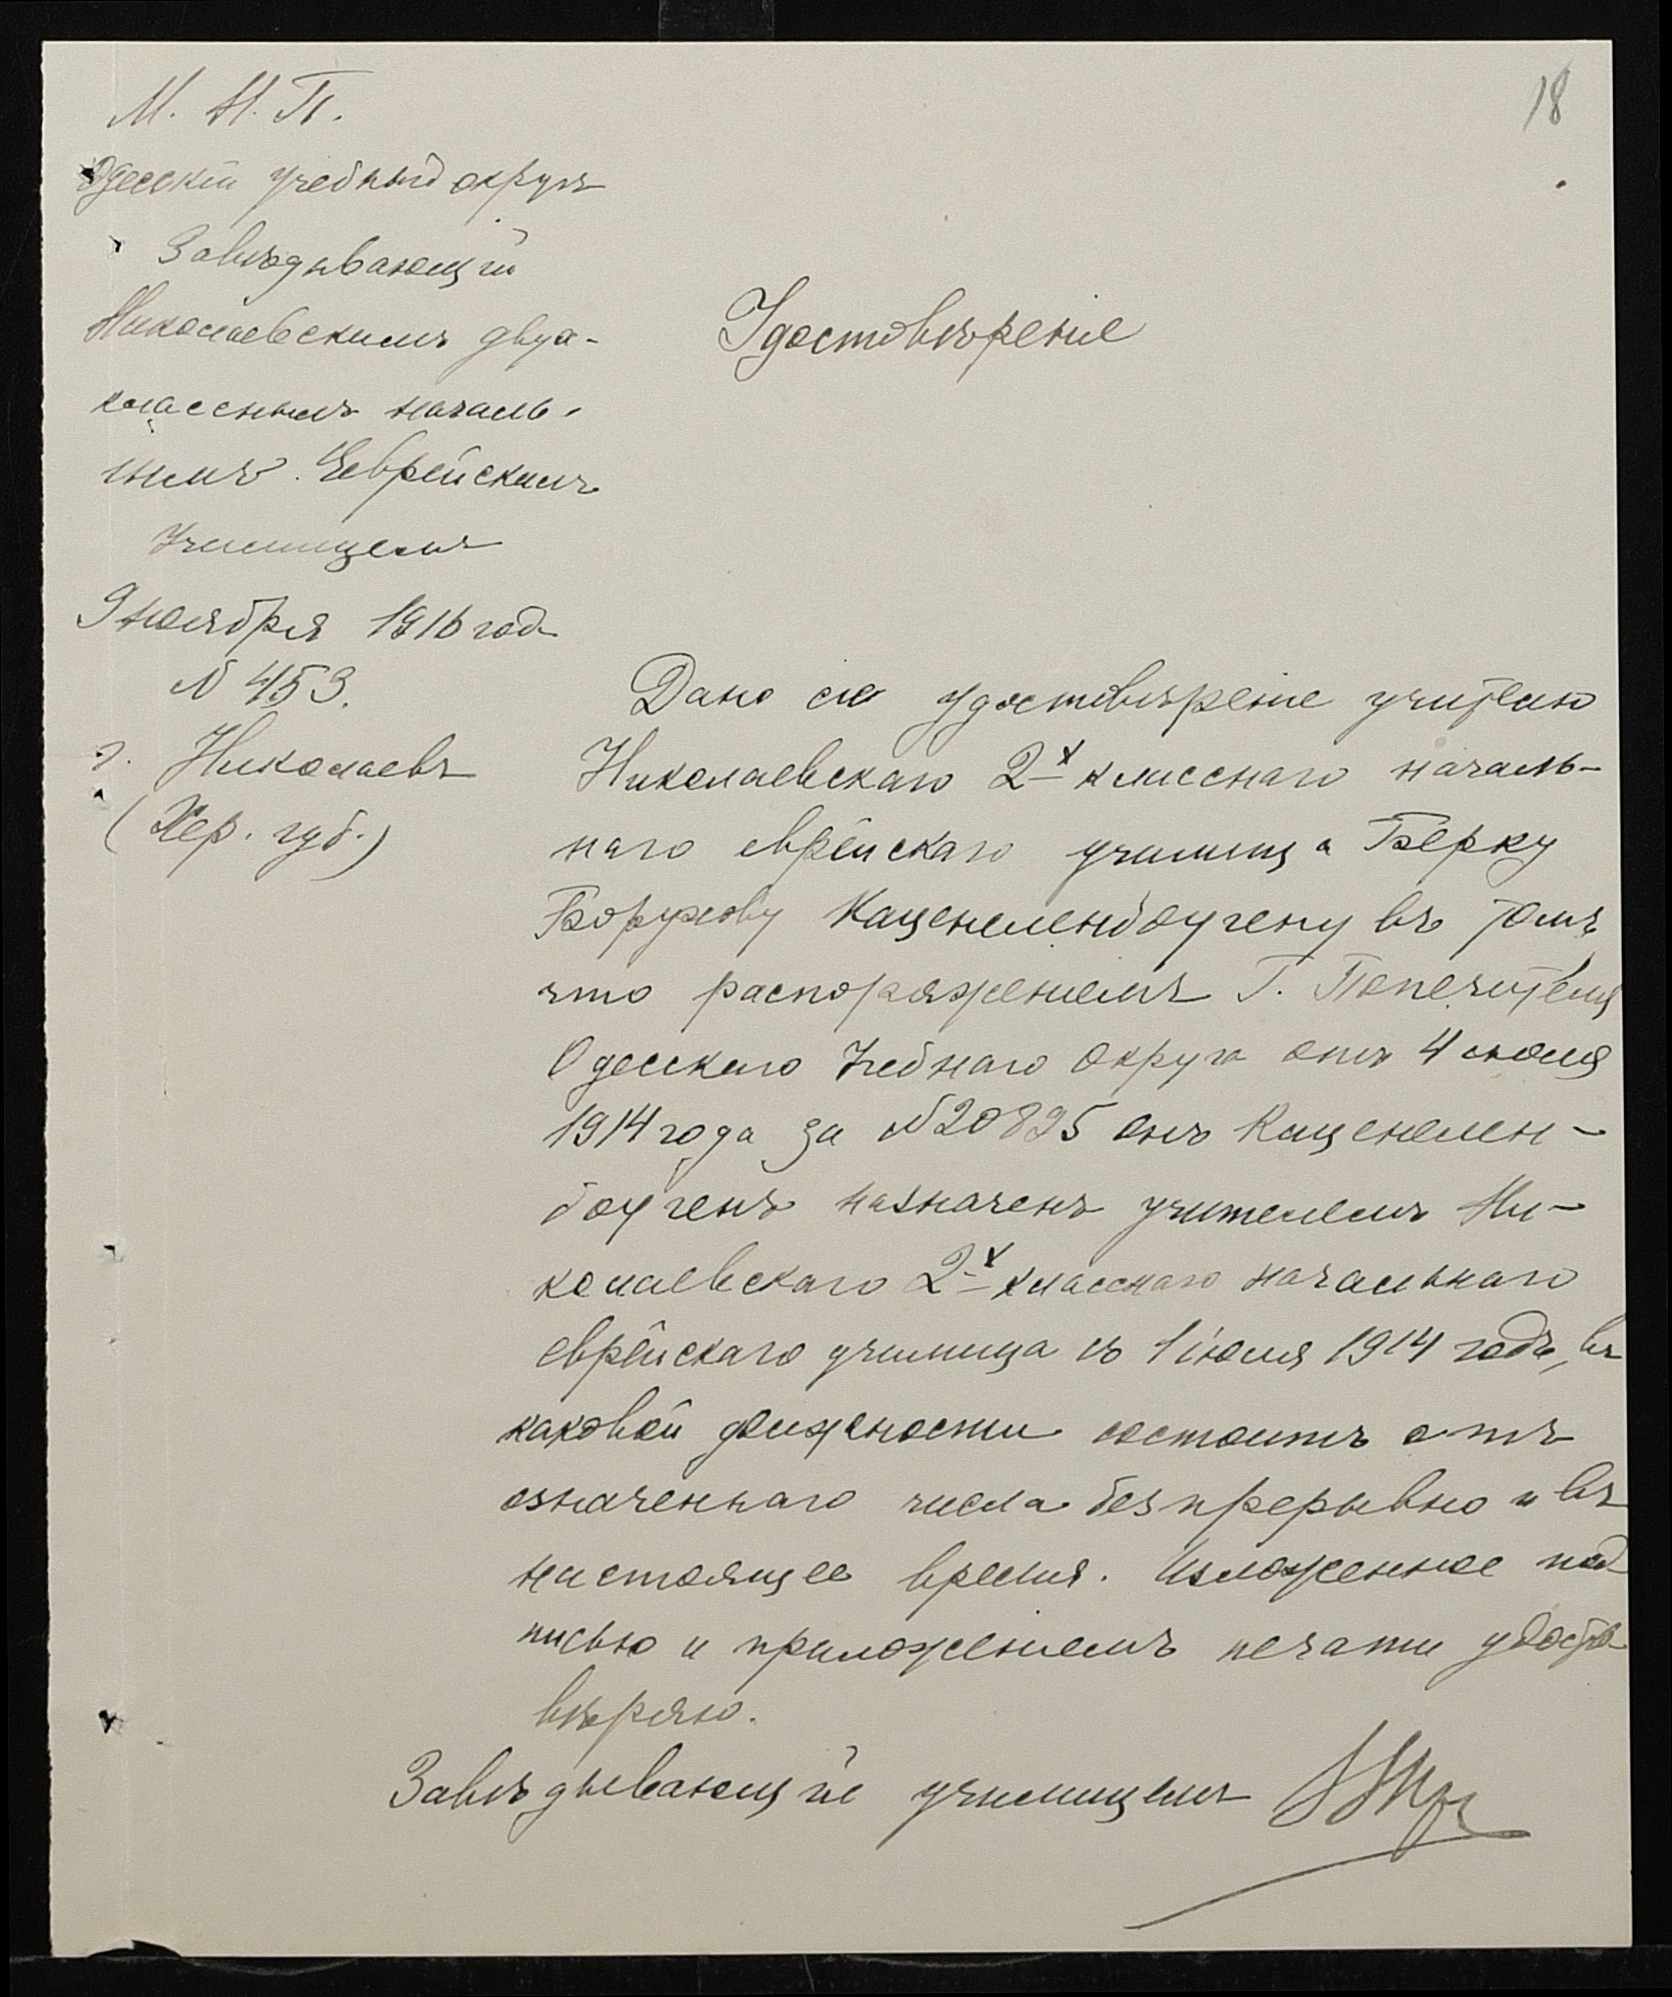 18
М. Н. П.
Одесскій учебный округъ
Завѣдывающій
Николаевскимъ двух-
класснымъ началь-
нымъ Еврейскимъ
Училищемъ
9 ноября 1916 года
N 453.
г. Николаевъ
(Хер. губ.)
Удостовѣреніе
Дано сіе удостовѣреніе учителю
Николаевскаго 2-х класснаго началь-
наго еврейскаго училища Берку
Борухову Каценеленбоугену въ томъ
что распоряженіемъ Г. Попечителя
Одесскаго Учебнаго Округа отъ 4 іюля
1914 года за N 20895 онъ Каценелен-
боугенъ назначенъ учителемъ Ни-
колаевскаго 2-х класснаго начальнаго
еврейскаго училища съ 1 іюля 1914 года, въ
каковой должности состоитъ отъ
означеннаго числа безпрерывно и въ
настоящее время. Изложенное под
писью и приложеніемъ печати удосто
вѣряю.
Завѣдывающій училищемъ